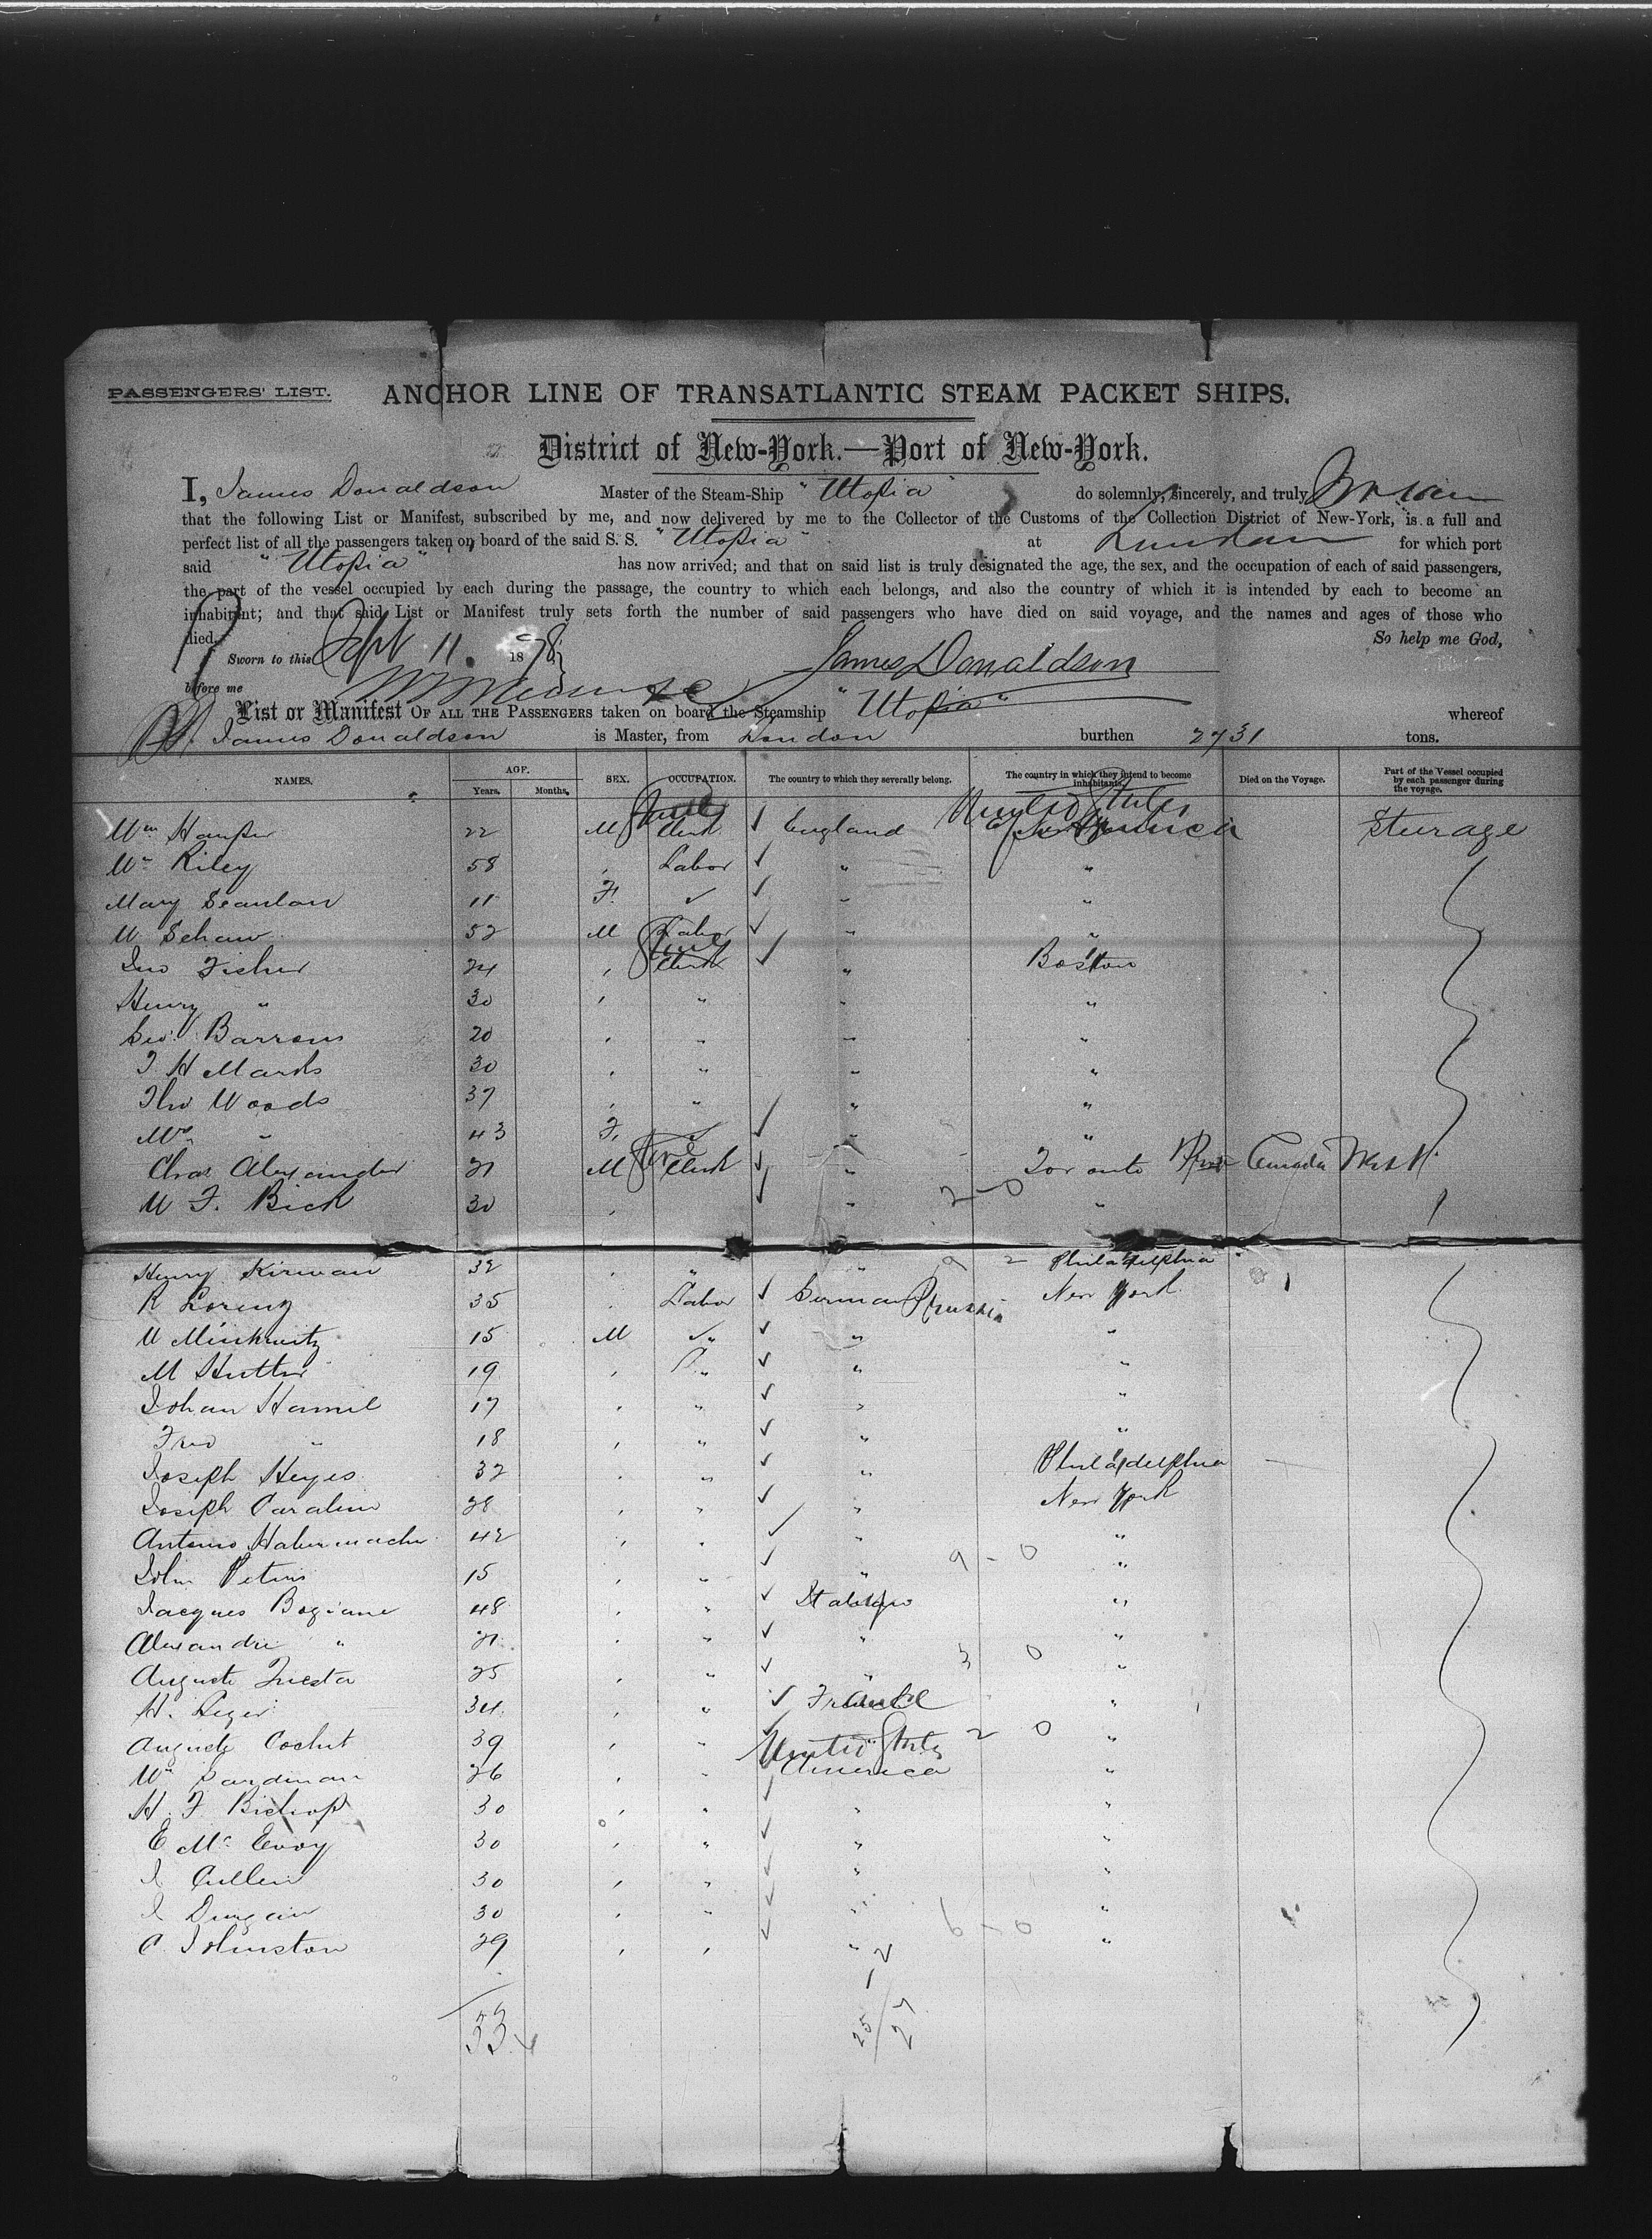 PASSENGERS' LIST. ANCHOR LINE OF TRANSATLANTIC STEAM PACKET SHIPS.
District of New-York.—Port of New-York.
I, James Donaldson Master of the Steam-Ship "Utopia" do solemnly, sincerely, and truly
that the following List or Manifest, subscribed by me, and now delivered by me to the Collector of the Customs of the Collection District of New-York, is a full and
perfect list of all the passengers taken on board of the said S. S. "Utopia" at London for which port
said "Utopia" has now arrived; and that on said list is truly designated the age, the sex, and the occupation of each of said passengers,
the part of the vessel occupied by each during the passage, the country to which each belongs, and also the country of which it is intended by each to become an
inhabitant; and that said List or Manifest truly sets forth the number of said passengers who have died on said voyage, and the names and ages of those who
died. So help me God,
Sworn to this Sept 11 1878 James Donaldson
before me
List or Manifest OF ALL THE PASSENGERS taken on board the Steamship "Utopia" whereof
James Donaldson is Master, from London burthen 2731 tons.
NAMES. AGE. Years. Months. SEX. OCCUPATION. The country to which they severally belong. The country in which they intend to become inhabitants. Died on the Voyage. Part of the Vessel occupied by each passenger during the voyage.
United States
Wm 22 M Clerk ✓ England America Sturage
Wm Riley 58 , Labor ✓ " "
Mary Scanlan 11 F. ✓ ✓ " "
W Schaw 52 M Labor ✓ " "
Jno Fisher 24 , Clerk ✓ " Boston
Henry " 30 , " " "
Geo. Barrons 20 , " " "
T H Marks 30 , " " "
Tho Woods 37 , " " "
Mrs " 43 F. ✓ ✓ " "
Chas Alexander 21 M Clerk ✓ " Toronto Canada West
W F. Bick 30 , ✓ " 2-0 "
Henry Kirwan 32 , " " Philadelphia
R Lorenz 35 , Labor ✓ German Prussia New York
W Minkwitz 15 M ✓" ✓ " "
M Hutter 19 , " ✓ " "
Johan Hamel 17 , " ✓ " "
Fred " 18 , " ✓ " "
Joseph Heyes 32 , " ✓ " Philadelphia
Joseph 28 , " ✓ " New York
Antonio Habermacher 42 , " ✓ " "
John Peters 15 , " ✓ " 9-0 "
Jacques Bogiane 48 , " ✓ Italy "
Alexandre " 21 , " ✓ " "
Auguste 25 , " ✓ " 3 0 "
H. 34 , " ✓ France "
Auguste Cochet 39 , " ✓ " 2 0 "
United States
Wm 26 , " America "
H. F. Bishop 30 , " ✓ " "
E Mc Evoy 30 , " ✓ " "
J Cullen 30 , " ✓ " "
J Dungan 30 , " ✓ " "
C Johnston 29 , , ✓ " 6-0 "
33
25/27